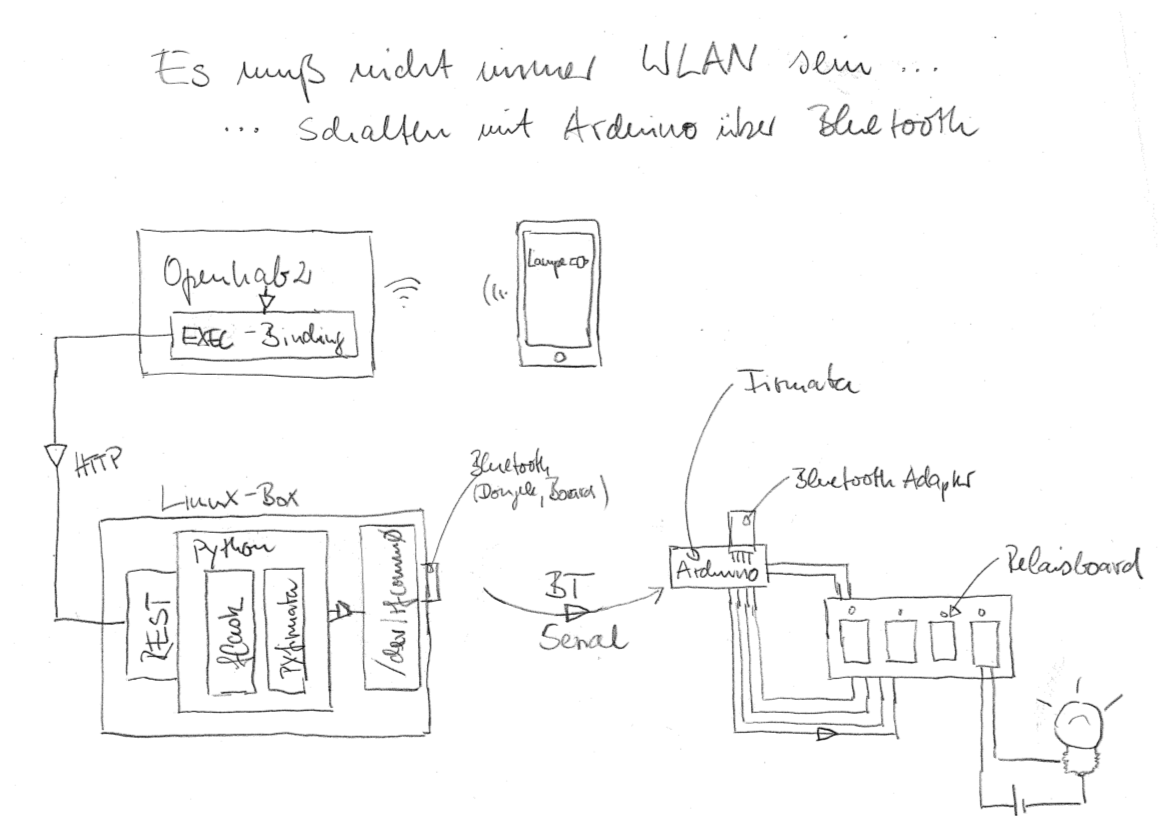 Es muß nicht immer WLAN sein ...
... Schalten mit Arduino über Bluetooth
Openhab2
EXEC-Binding
Lampe
HTTP
Linux-Box
Python
REST
flask
pyfirmata
/dev/rfcomm0
Bluetooth
(Dongle, Board)
BT
Serial
Firmata
Bluetooth Adapter
Arduino
Relaisboard